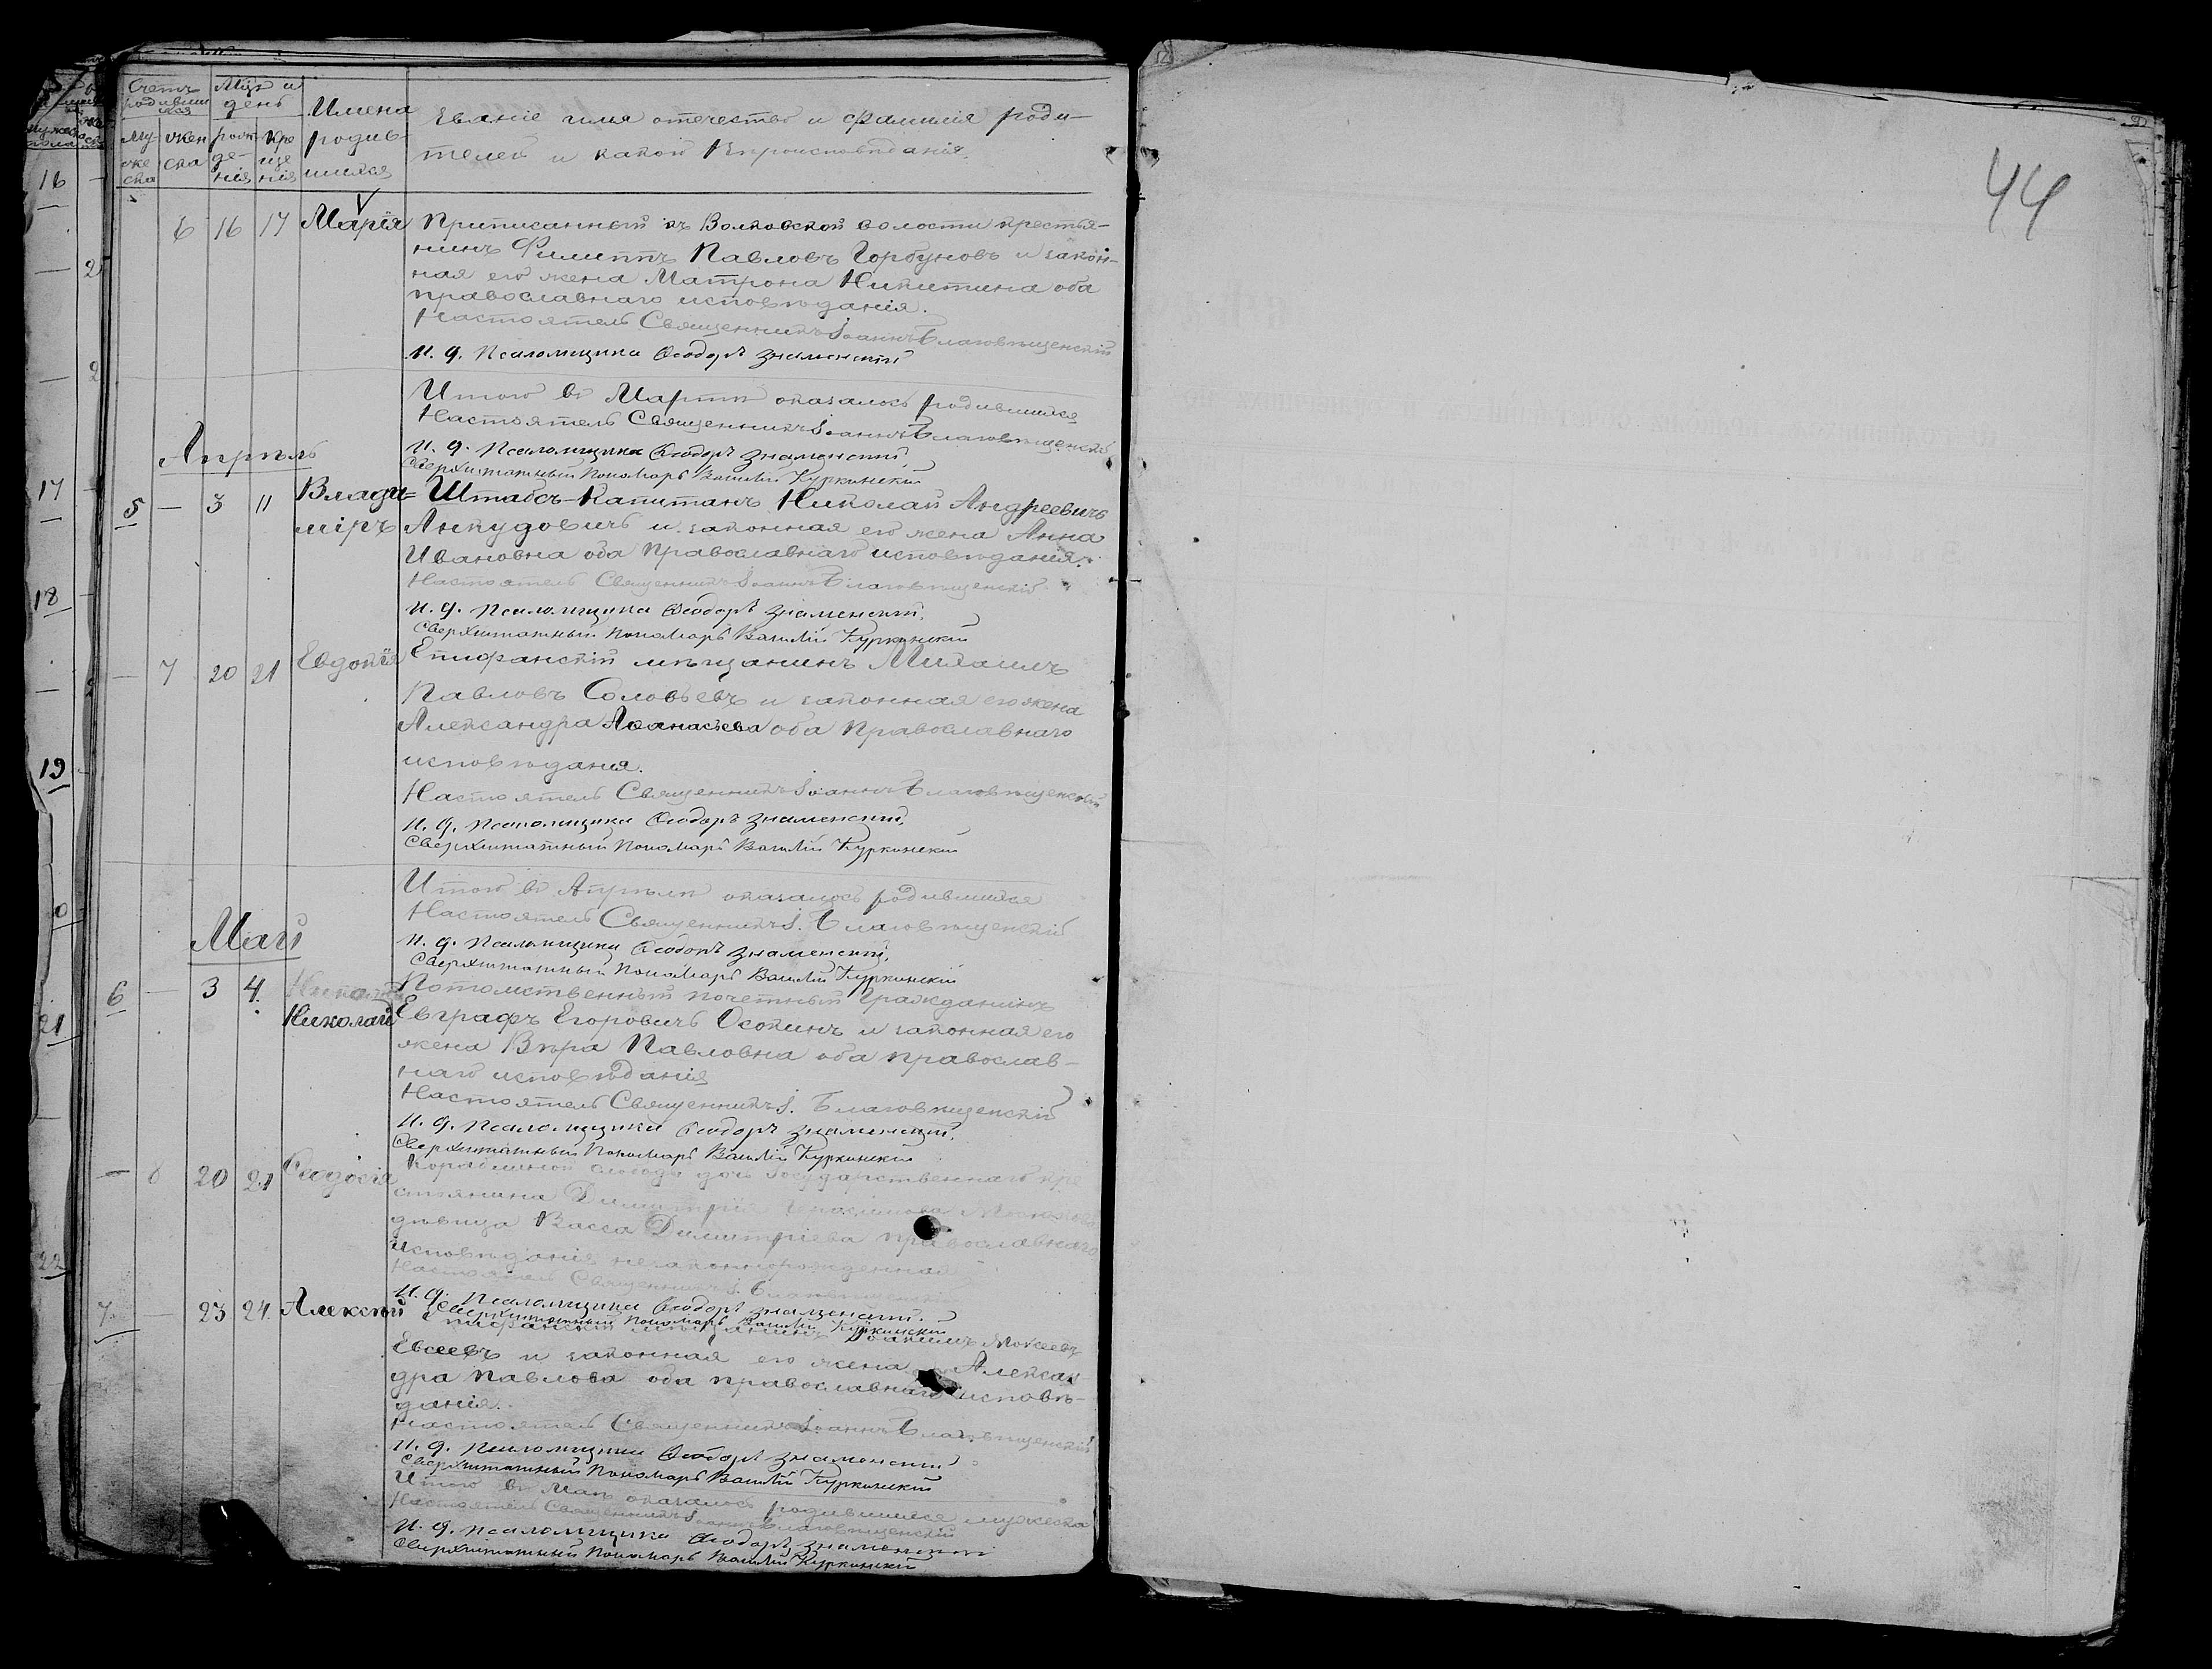 Счетъ родившихся
Мцъ и день
Имена родившихся
Званіе имя отечество и фамилія роди-
телей и какой Вѣроисповѣданія.
Му-жеска
жен ска
рож-де-нія
кре ще нія
16
6 16 17 Марія Приписанный къ Волковской волости крестья-
нинъ Филиппъ Павловъ Горбуновъ и закон-
ная его жена Матрона Никитина оба
православнаго исповѣданія.
Настоятель Священникъ Іоаннъ Благовѣщенскій
И. д. Псаломщика Ѳеодоръ Знаменскій
Итого въ Мартѣ оказалось родившихся
Настоятель Священникъ Іоаннъ Благовѣщенскій
И. д. Псаломщика Ѳеодоръ Знаменскій
Сверхштатный Пономарь Василій Куркинскій
Апрѣль
17
5 — 3 11 Влади= Штабсъ-Капитанъ Николай Андреевичъ
міръ Анкудовичъ и законная его жена Анна
Ивановна оба Православнаго исповѣданія.
Настоятель Священникъ Іоаннъ Благовѣщенскій
18
И. д. Псаломщика Ѳеодоръ Знаменскій.
Сверхштатный Пономарь Василій Куркинскій
— 7 20 21 Евдокія Епифанскій мѣщанинъ Михаилъ
Павловъ Соловьевъ и законная его жена
Александра Аѳанасьева оба Православнаго
исповѣданія.
19
Настоятель Священникъ Іоаннъ Благовѣщенскій
И. д. Псаломщика Ѳеодоръ Знаменскій.
Сверхштатный Пономарь Василій Куркинскій
Итого въ Апрѣлѣ оказалось родившихся
Настоятель Священникъ І. Благовѣщенскій
Май
И. д. Псаломщика Ѳеодоръ Знаменскій.
Сверхштатный Пономарь Василій Куркинскій
6 — 3 4. Потомственный почетный Гражданинъ
21
Николай Евграфъ Егоровичъ Осокинъ и законная его
жена Вѣра Павловна оба православ-
наго исповѣданія
Настоятель Священникъ І. Благовѣщенскій
И. д. Псаломщика Ѳеодоръ Знаменскій.
Сверхштатный Пономарь Василій Куркинскій
— 8 20 21 Ѳеодосія слободы дочь Государственнаго кре
стьянина Димитрія
дѣвица Васса Димитріева православнаго
исповѣданія незаконнорожденная
22
Настоятель Священникъ І. Благовѣщенскій
И. д. Псаломщика Ѳеодоръ Знаменскій.
Сверхштатный Пономарь Василій Куркинскій
7 — 23 24 Алексѣй Епифанскій мѣщанинъ Іоакимъ Мокеевъ
Евсеевъ и законная его жена Алексан
дра Павлова оба православнаго исповѣ-
данія.
Настоятель Священникъ Іоаннъ Благовѣщенскій
И. д. Псаломщика Ѳеодоръ Знаменскій
Сверхштатный Пономарь Василій Куркинскій
Итого въ Маѣ оказалось родившихся мужеска
Настоятель Священникъ Іоаннъ Благовѣщенскій
И. д. Псаломщика Ѳеодоръ Знаменскій
Сверхштатный Пономарь Василій Куркинскій
44